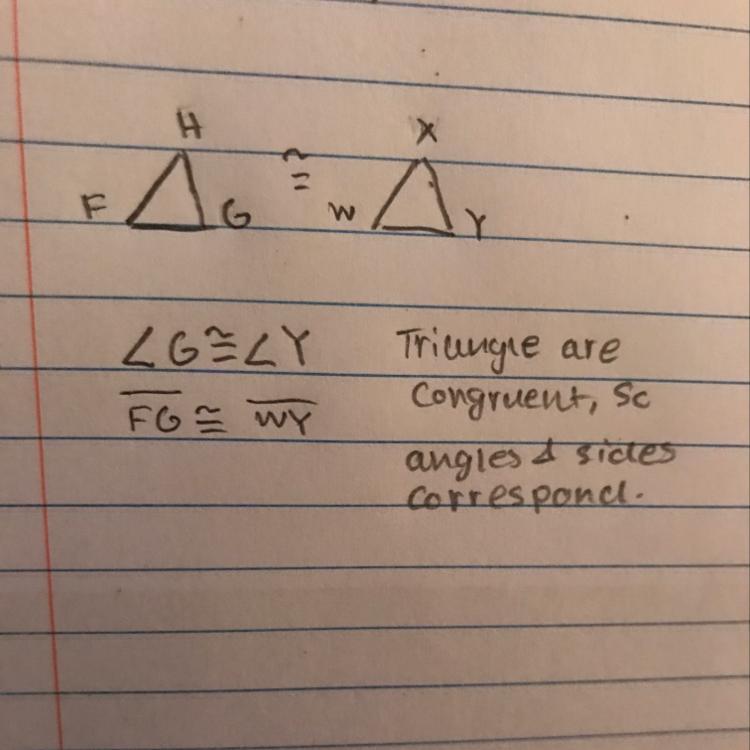 H X
F G ≅ W Y
∠G ≅ ∠Y Triungle are
FG ≅ WY Congruent, So
angles & sides
correspond.